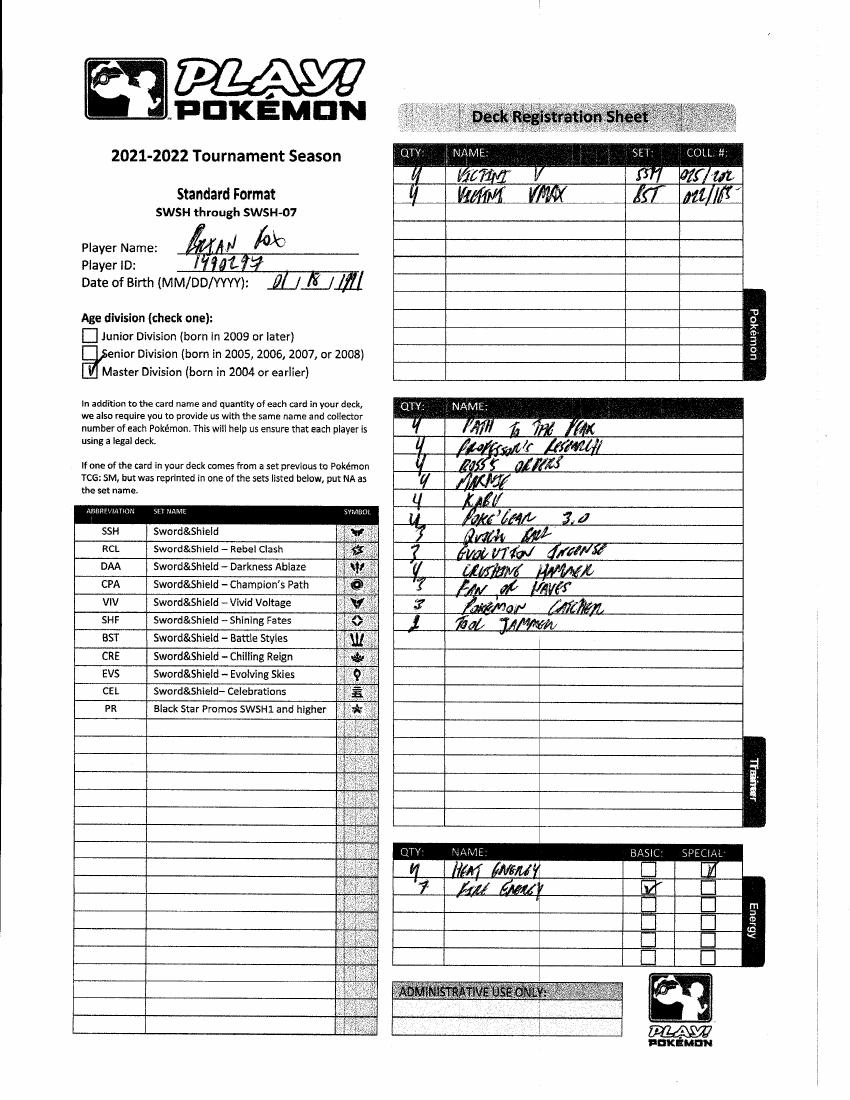 PLAY!
POKÉMON
Deck Registration Sheet
2021-2022 Tournament Season
Standard Format
SWSH through SWSH-07
Player Name: Fox
Player ID: 1490297
Date of Birth (MM/DD/YYYY): 01 / 18 / 1991
Age division (check one):
Junior Division (born in 2009 or later)
Senior Division (born in 2005, 2006, 2007, or 2008)
Master Division (born in 2004 or earlier)
In addition to the card name and quantity of each card in your deck,
we also require you to provide us with the same name and collector
number of each Pokémon. This will help us ensure that each player is
using a legal deck.
If one of the card in your deck comes from a set previous to Pokémon
TCG: SM, but was reprinted in one of the sets listed below, put NA as
the set name.
ABBREVIATION SET NAME SYMBOL
SSH Sword&Shield
RCL Sword&Shield – Rebel Clash
DAA Sword&Shield – Darkness Ablaze
CPA Sword&Shield – Champion's Path
VIV Sword&Shield – Vivid Voltage
SHF Sword&Shield – Shining Fates
BST Sword&Shield – Battle Styles
CRE Sword&Shield – Chilling Reign
EVS Sword&Shield – Evolving Skies
CEL Sword&Shield– Celebrations
PR Black Star Promos SWSH1 and higher
QTY: NAME: SET: COLL. #:
4 VICTINI V SSH 025/202
4 VICTINI VMAX BST 022/163
Pokémon
QTY: NAME:
4 PATH TO THE PEAK
4 PROFESSOR'S RESEARCH
4 BOSS'S ORDERS
4 MARNIE
4 KABU
4 POKE'GEAR 3.0
3 QUICK BALL
3 EVOLUTION INCENSE
4 CRUSHING HAMMER
3 FAN OF WAVES
3 POKEMON CATCHER
1 TOOL JAMMER
Trainer
QTY: NAME: BASIC: SPECIAL:
4 HEAT ENERGY
7 FIRE ENERGY
Energy
ADMINISTRATIVE USE ONLY:
PLAY!
POKÉMON